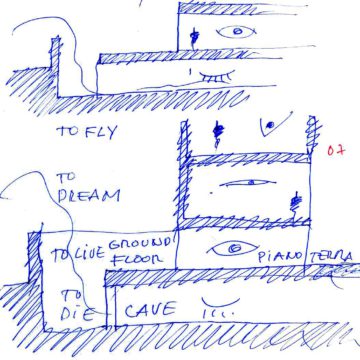 TO FLY
07
TO
DREAM
TO LIVE GROUND
FLOOR
PIANO TERRA
TO
DIE
CAVE